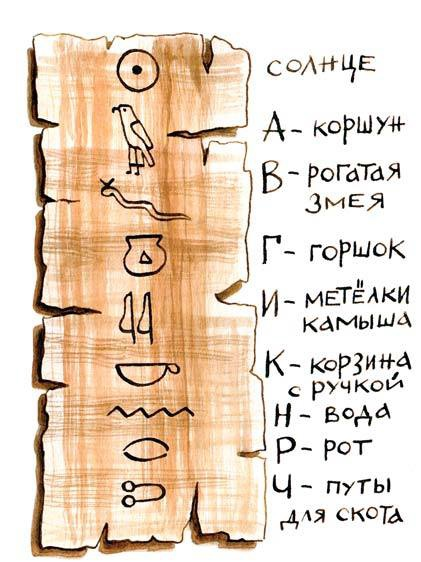 СОЛНЦЕ
А – КОРШУН
В – РОГАТАЯ
ЗМЕЯ
Г – ГОРШОК
И – МЕТЁЛКИ
КАМЫША
К – КОРЗИНА
С РУЧКОЙ
Н – ВОДА
Р – РОТ
Ч – ПУТЫ
ДЛЯ СКОТА